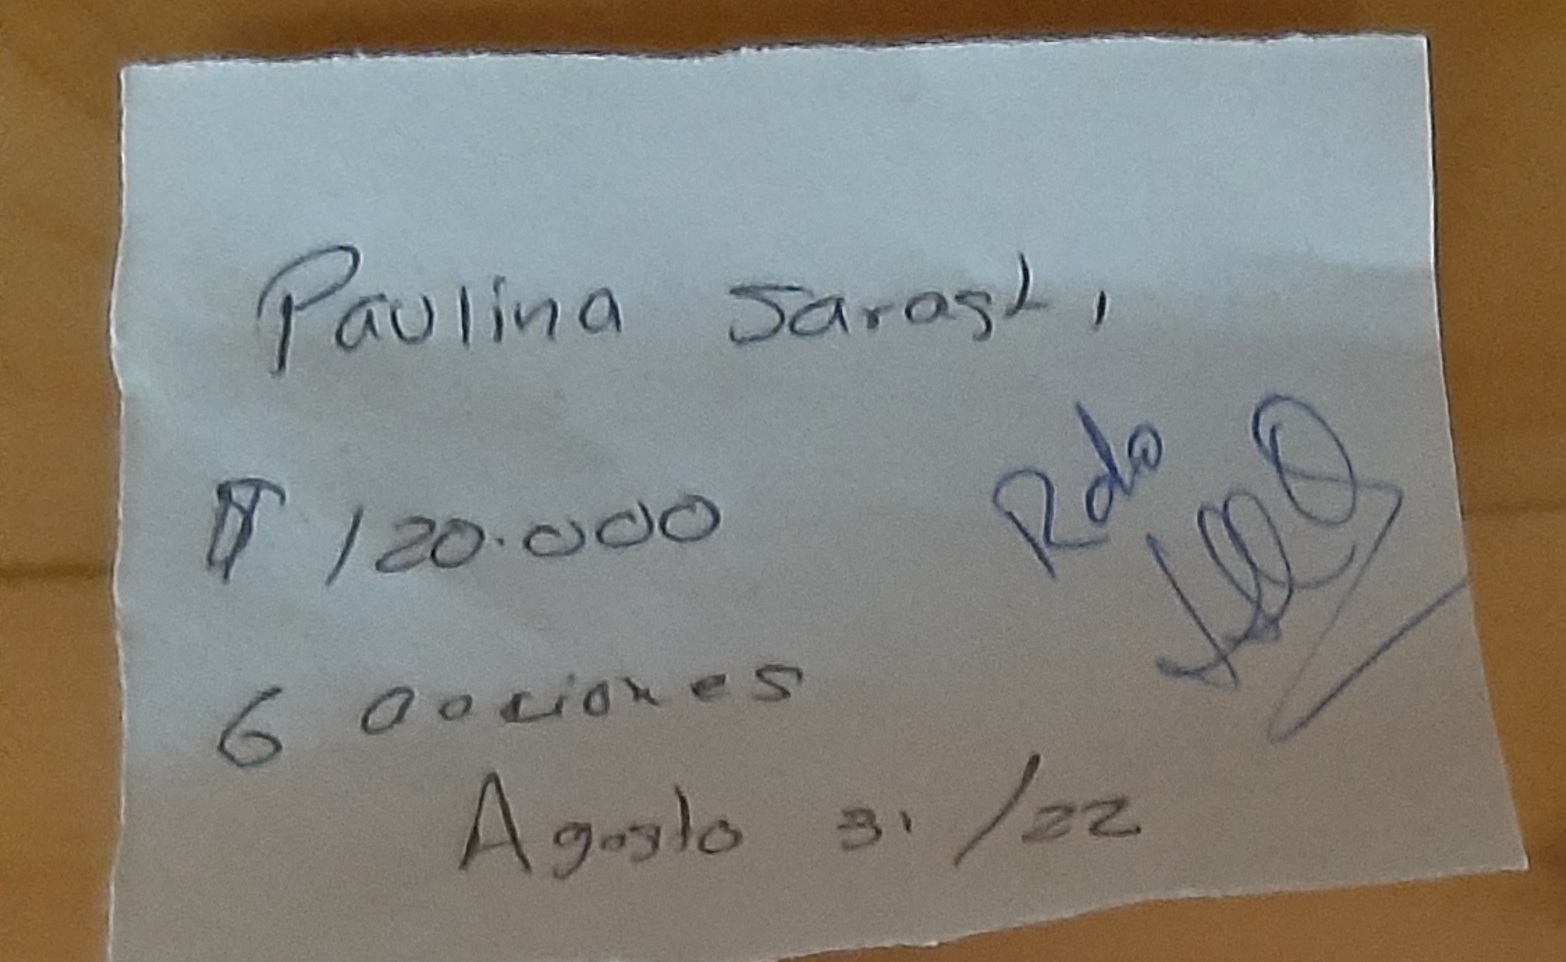 Paulina Sarasti
$ 120.000
Rdo
6 acciones
Agosto 31/22